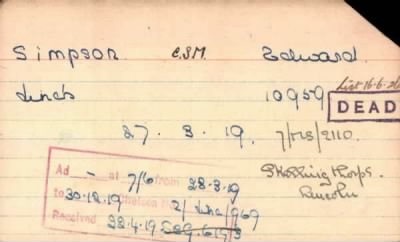 Simpson. C.S.M. Edward.
List 16.6.
Lincs 10959
DEAD
27. 3. 19. 7/MS/2110.
Ad at 7/6 from 28.3.19
to 30.12.19 Chelsea 2/Linc/969
Received 22.4.19
Skellingthorpe.
Lincoln